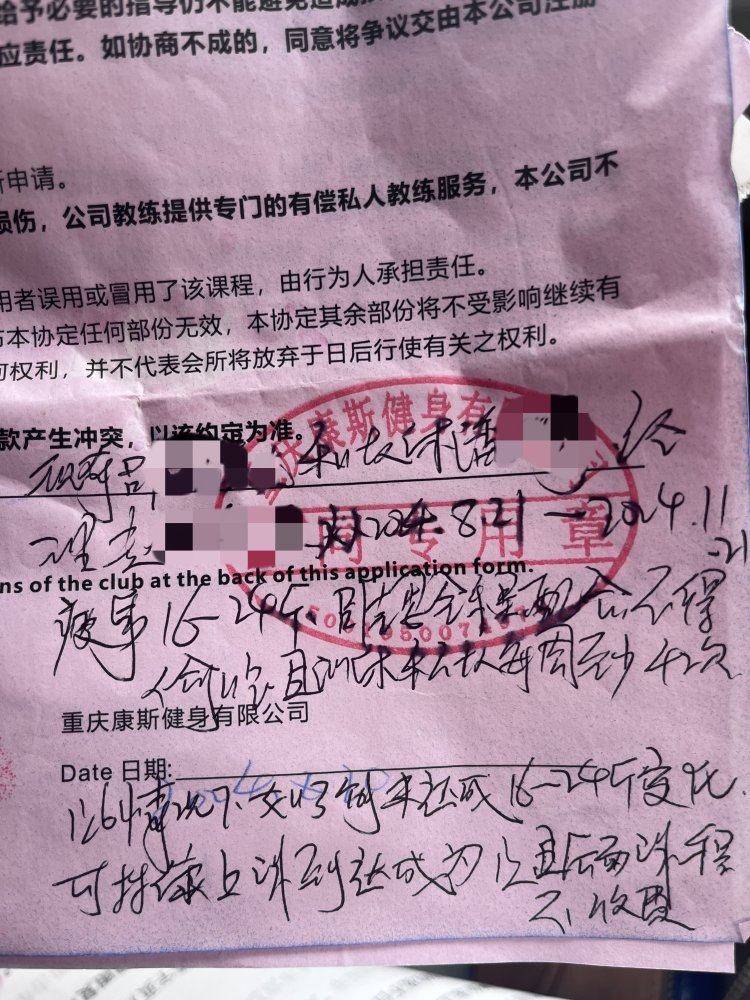 给予必要的指导仍不能避免造成
应责任。如协商不成的，同意将争议交由本公司注册
申请。
损伤，公司教练提供专门的有偿私人教练服务，本公司不
用者误用或冒用了该课程，由行为人承担责任。
本协定任何部份无效，本协定其余部份将不受影响继续有
何权利，并不代表会所将放弃于日后行使有关之权利。
款产生冲突，以该约定为准。
重庆康斯健身有
私教课 经
理 2024.8.21—2024.11
-21
专用章
ns of the club at the back of this application form.
瘦身16-24斤、 全程配合不得
且 私教每周至少4次
重庆康斯健身有限公司
Date 日期:
以上情况下 未达成16-24斤变化
可持续上课到达成为止且后面课程
不收费